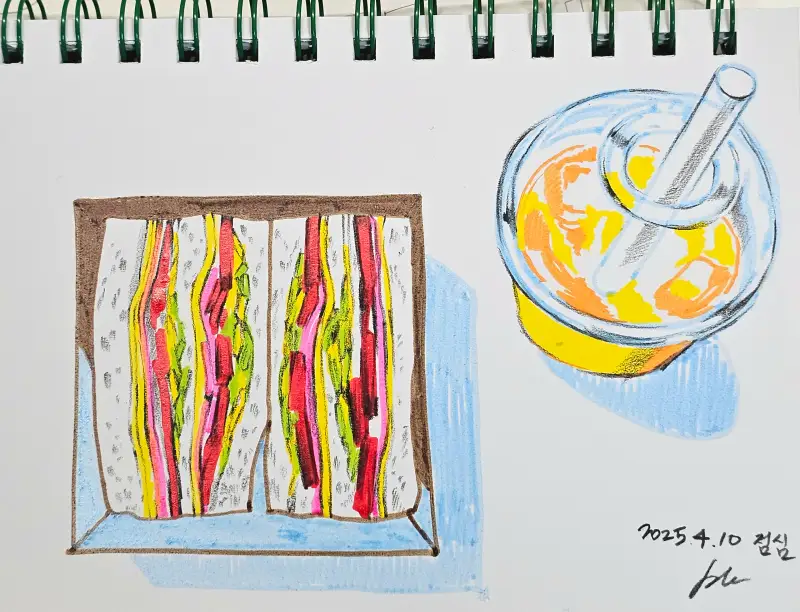 2025.4.10 점심